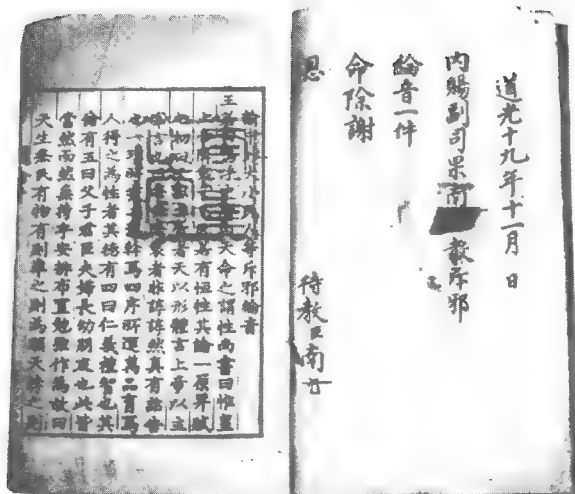 道光十九年十一月 日
內賜副司果南 教斥邪
綸音一件
命除謝
恩
待教臣南
諭 大小民人等斥邪綸音
王 呼 天命之謂性尚書曰惟皇
上 若有恒性其論一原畀賦
之初曰 者天以形體言上帝以主
者非諄諄然真有詔告
也一 為四序所運萬品育焉
人得之為性者其德有四曰仁義禮智也其
倫有五曰父子君臣夫婦長幼朋友也此皆
當然而然無待乎安排布置勉强作為故曰
天生烝民有物有則率之則為順天悖之則